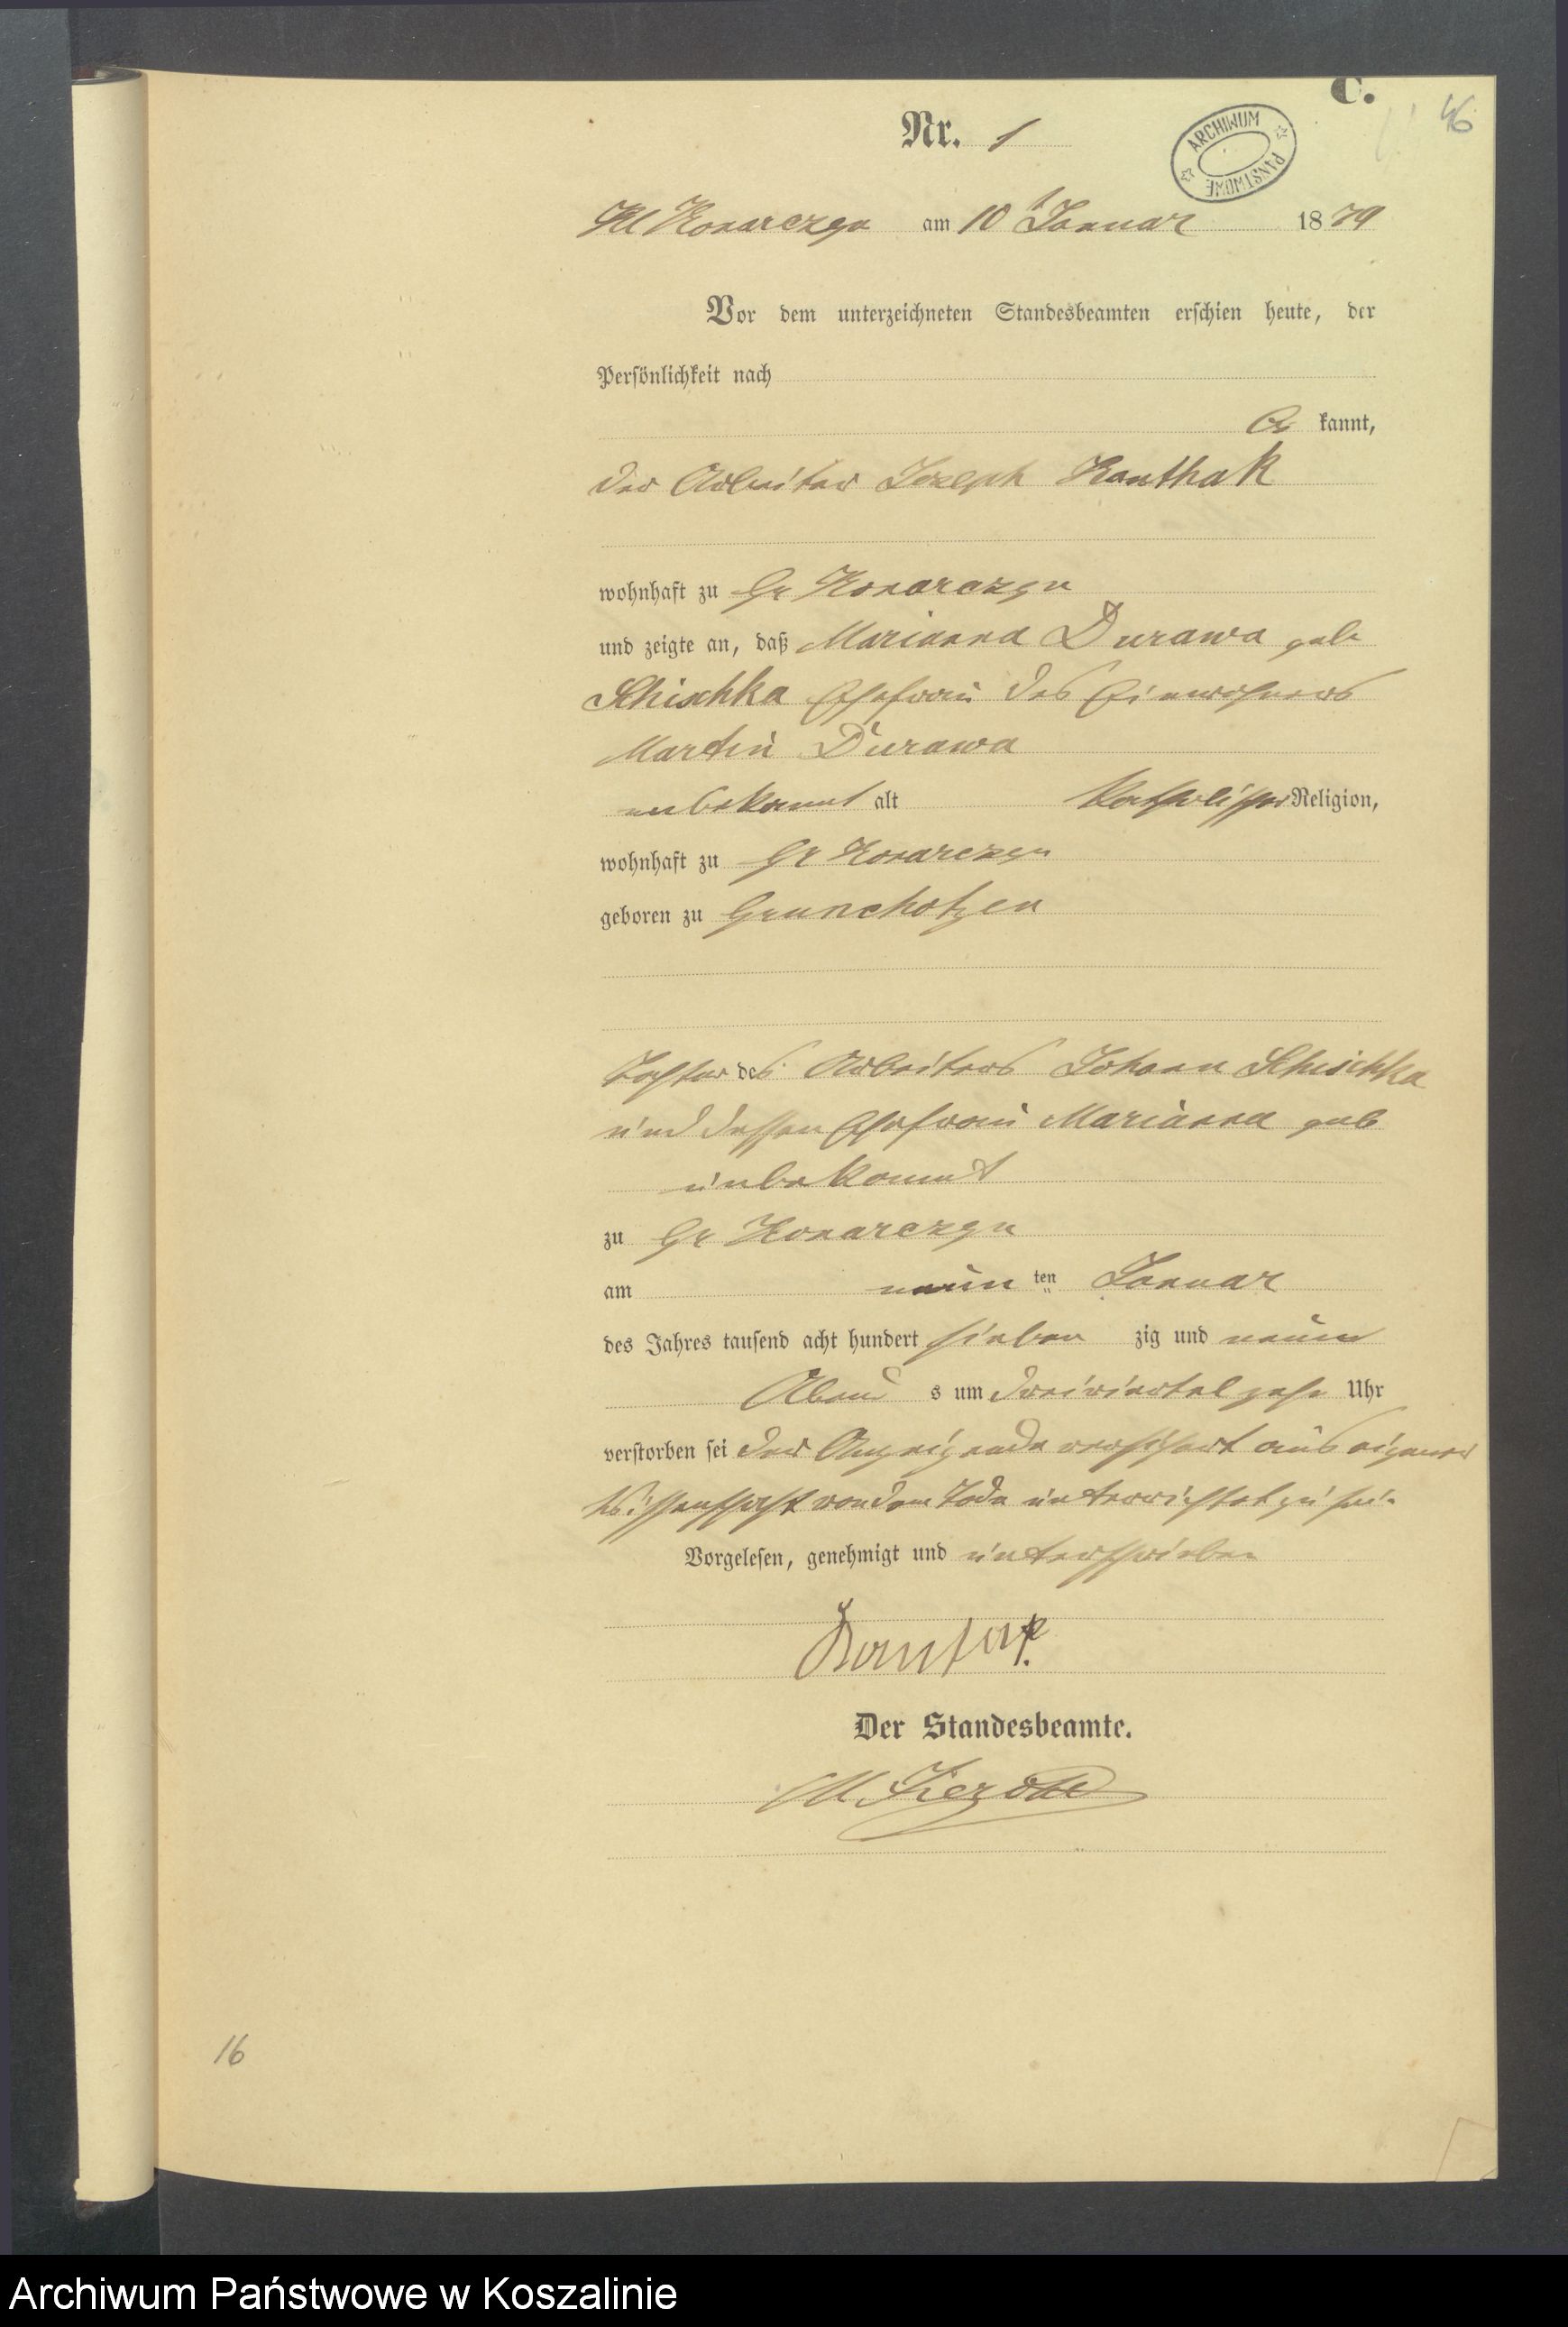 C.
46
ARCHIWUM PAŃSTWOWE
Nr. 1
Kl Konarczyn am 10 t Januar 1879
Vor dem unterzeichneten Standesbeamten erschien heute, der
Persönlichkeit nach
be kannt,
der Arbeiter Joseph Kanthak
wohnhaft zu Gr Konarczyn
und zeigte an, daß Marianna Durawa geb
Schischka Ehefrau des Einwohners
Martin Durawa
unbekannt alt katholischer Religion,
wohnhaft zu Gr Konarczyn
geboren zu Grunchotzen
Tochter des Arbeiters Johann Schischka
und dessen Ehefrau Marianna geb
unbekannt
zu Gr Konarczyn
am neun ten Januar
des Jahres tausend acht hundert sieben zig und neun
Abend s um dreiviertel zehn Uhr
verstorben sei der Anzeigende versichert aus eigener
Wissenschaft von dem Tode unterrichtet zu sein
Vorgelesen, genehmigt und unterschrieben
Der Standesbeamte.
16
Archiwum Państwowe w Koszalinie